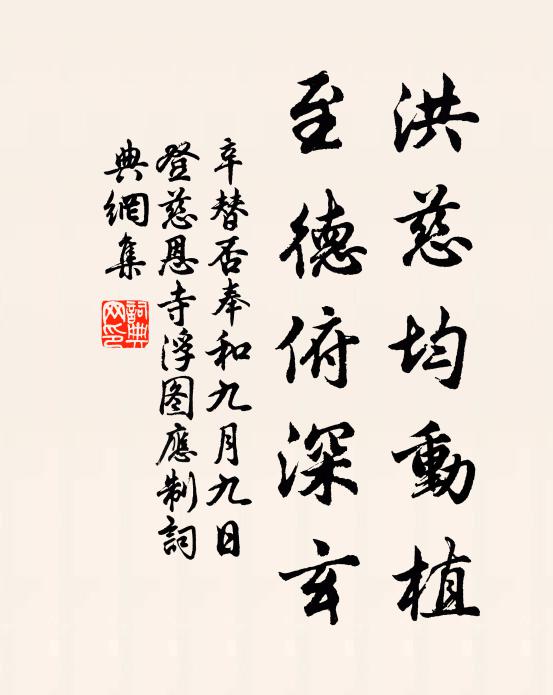 洪慈均動植
至德俯深玄
辛替否奉和九月九日
登慈恩寺浮图應制詞
典網集
詞典网印